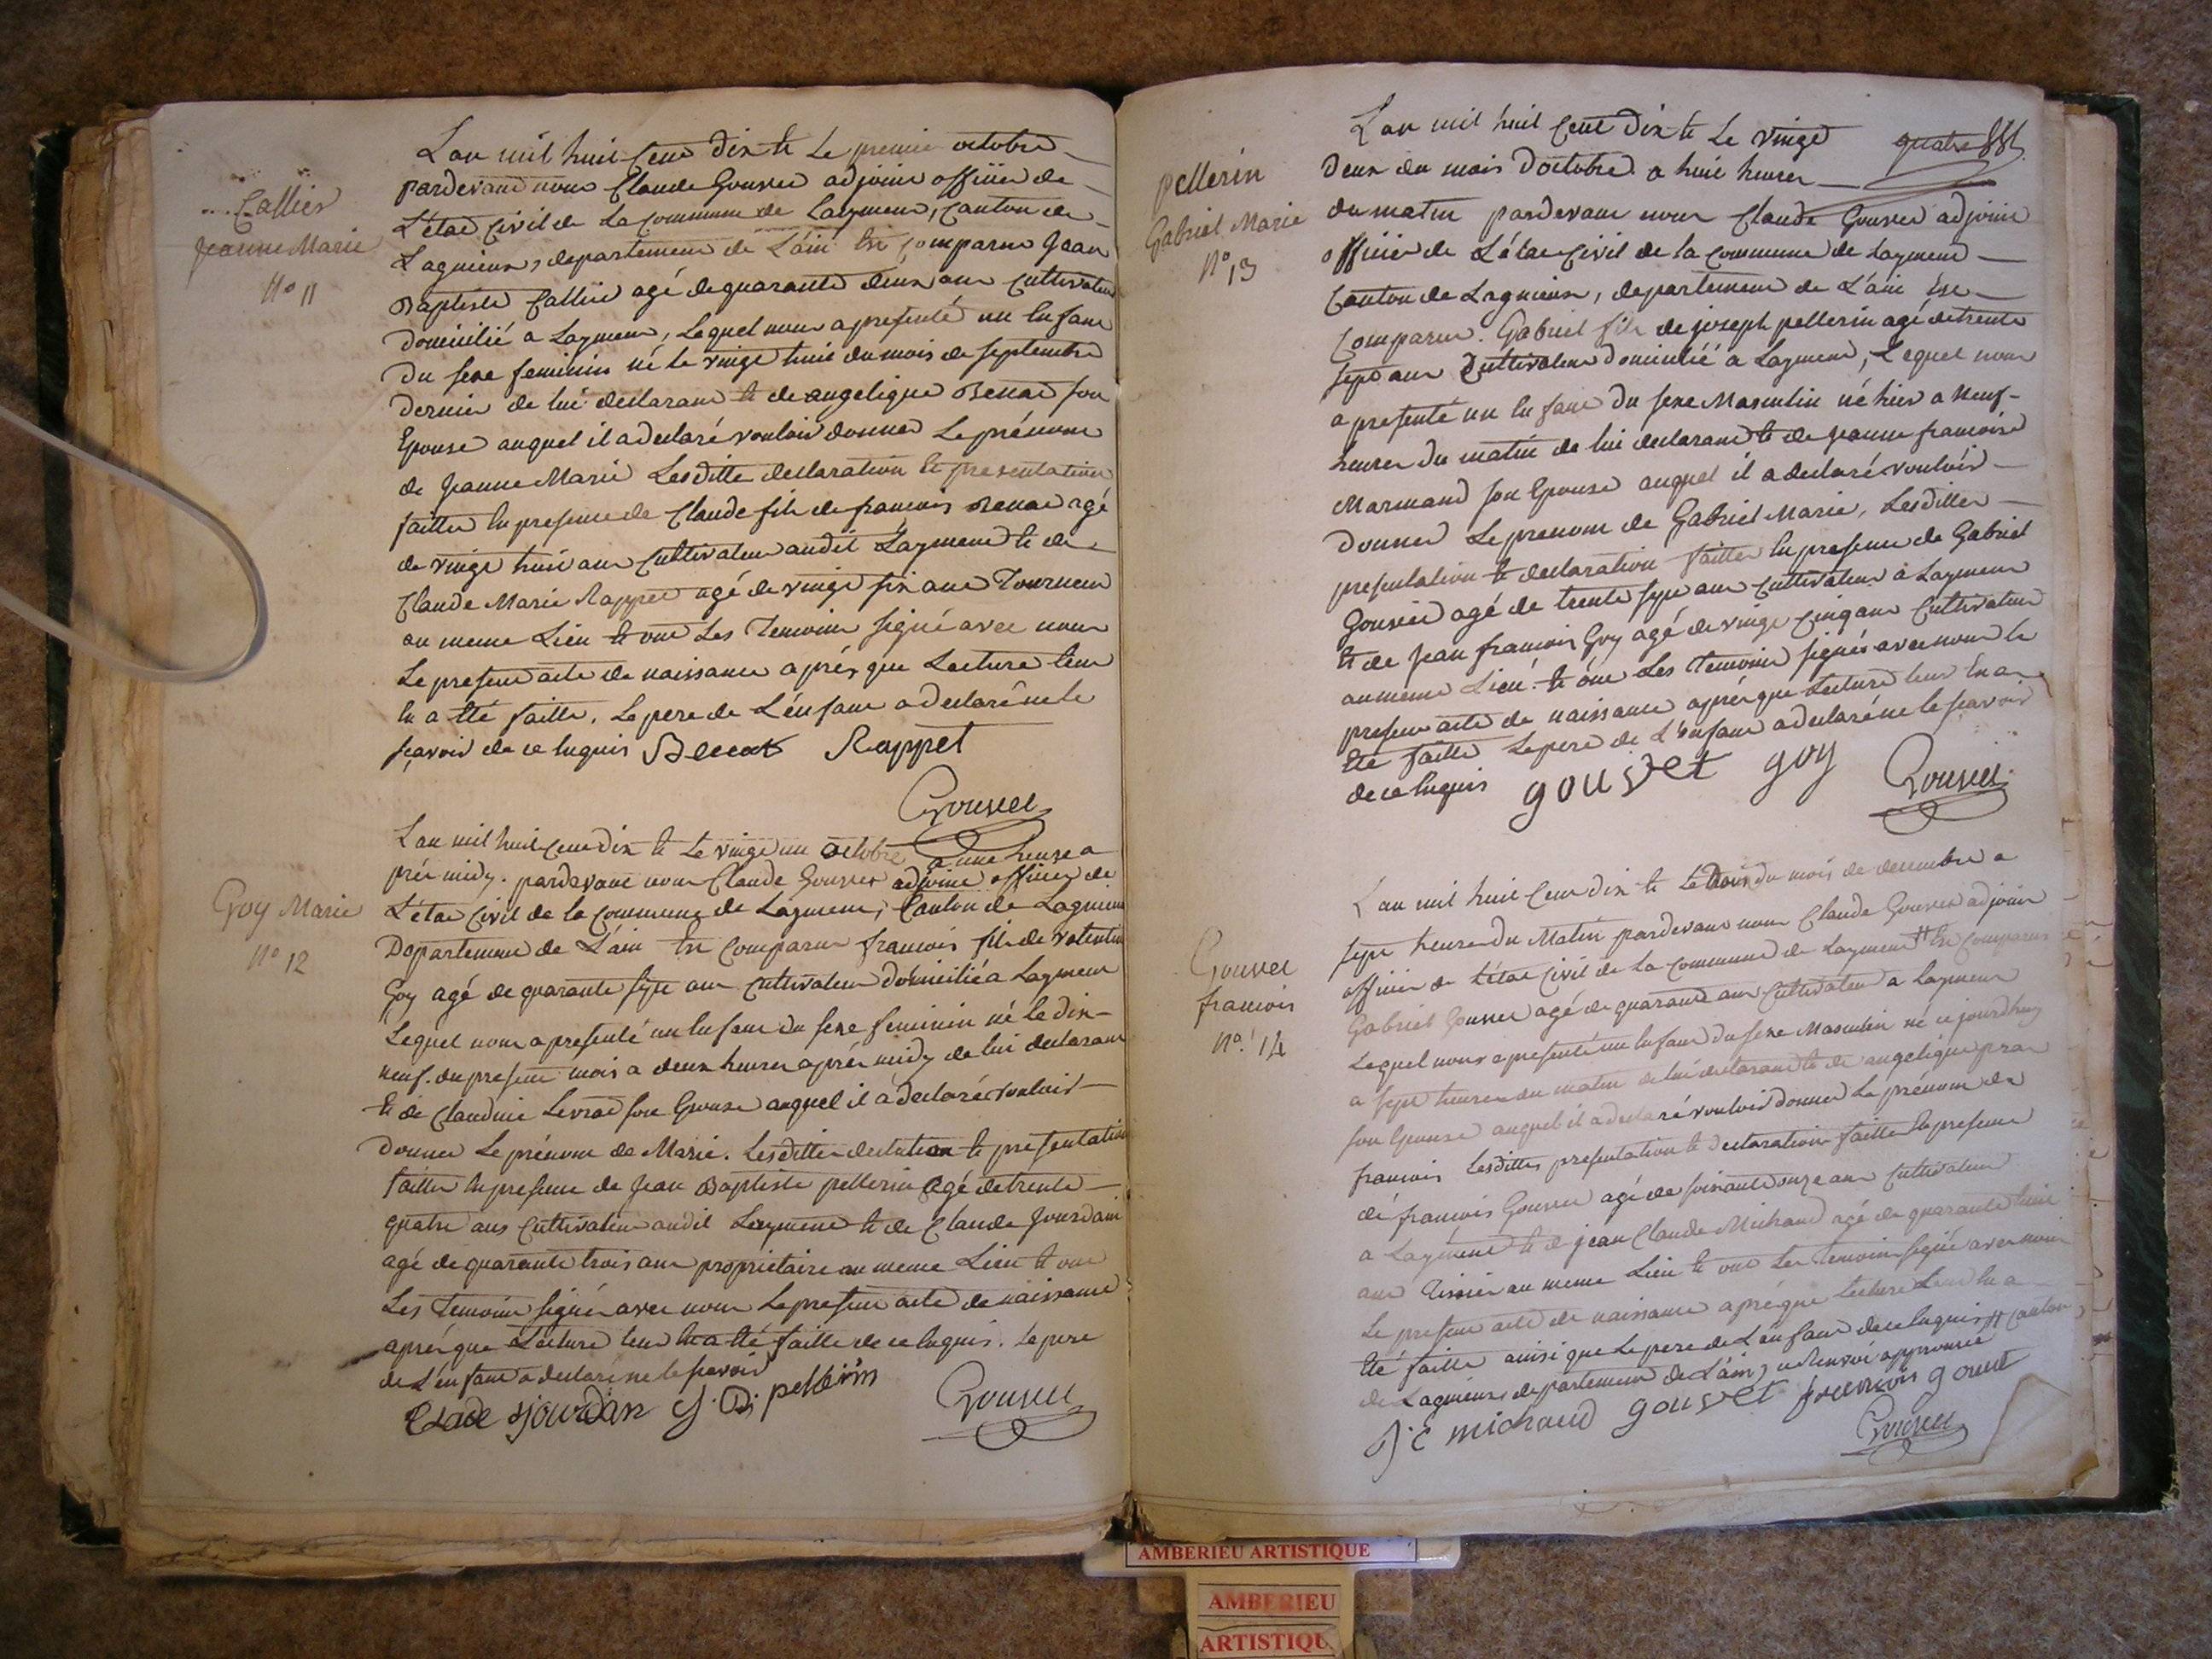 Callier
Jeanne Marie
N° 11
L'an mil huit Cent Dix et Le premier octobre
pardevant nous Claude Gouvet adjoint officier de
L'état Civil de La Commune de Laymens, Canton de
Lagnieux, departement de L'ain est Comparu Jean
Baptiste Callier agé de quarante deux ans Cultivateur
domicilié a Laymens, Lequel nous a presenté un Enfant
du sexe feminin né le vingt huit du mois de septembre
dernier de lui declarant et de angelique son
Epouse auquel il a declaré vouloir donner Le prénom
de Jeanne Marie Lesditte declaration et presentation
faitte En presence de Claude fils de francois agé
de vingt huit ans Cultivateur audit Laymens et de
Claude Marie Rappet agé de vingt six ans Tourneur
au meme Lieu et ont Les Temoins signé avec nous
Le present acte de naissance aprés que Lecture leur
En a Eté faitte. Le pere de L'enfant a declaré ne le
sçavoir de ce Enquis Rappet
Gouvet
Guy Marie
N° 12
L'an mil huit Cent dix et Le vingt un octobre a une heure a
prés midy. pardevant nous Claude Gouvet adjoint officier de
L'état Civil de la Commune de Laymens, Canton de Lagnieux
Departement de L'ain est Comparu francois fils de valentin
Goy agé de quarante sept ans Cultivateur domicilié a Laymens
Lequel nous a presenté un Enfant du sexe feminin né Le dix-
neuf du present mois a deux heures aprés midy de lui declarant
et de Claudine Levrat son Epouse auquel il a declaré vouloir
donner Le prénom de Marie. Lesdittes et presentation
faittes En presence de Jean Baptiste pellerin agé de trente
quatre ans Cultivateur audit Laymens et de Claude Jourdain
agé de quarante trois ans proprietaire au meme Lieu et ont
Les Temoins signés avec nous Le present acte de naissance
aprés que Lecture leur En a Eté faitte de ce Enquis. Le pere
de L'enfant a declaré ne le sçavoir
Jourdan J. B. pellerin
Gouvet
quatre
pellerin
Gabriel Marie
N° 13
L'an mil huit Cent Dix et Le vingt
Deux du mois D'octobre a huit heures
du matin pardevant nous Claude Gouvet adjoint
officier de L'état Civil de la Commune de Laymens
Canton de Lagnieux, departement de L'ain est
Comparu. Gabriel fils de joseph pellerin agé de trente
sept ans Cultivateur domicilié a Laymens, Lequel nous
a presenté un Enfant du sexe Masculin né hier a neuf
heures du matin de lui declarant et de Jeanne francoise
Marmand son Epouse auquel il a declaré vouloir
Donner Le prenom de Gabriel Marie, Lesdittes
presentation et declaration faittes En presence de Gabriel
Gouvet agé de trente sept ans Cultivateur a Laymens
et de Jean francois Goy agé de vingt Cinq ans Cultivateur
au meme Lieu. et ont Les Temoins signés avec nous le
present acte de naissance aprés que Lecture leur En a
Eté faitte Le pere de L'enfant a declaré ne le sçavoir
de ce Enquis gouvet goy
Gouvet
Gouvet
francois
N° 14
L'an mil huit Cent dix et Le du mois de decembre a
sept heures du Matin pardevant nous Claude Gouvet adjoint
officier de L'état Civil de La Commune de Laymens # Est Comparu
Gabriel Gouvet agé de quarante ans Cultivateur a Laymens
Lequel nous a presenté un Enfant du sexe Masculin né ce jourdhuy
a sept heures du matin de lui declarant et de angelique
son Epouse auquel il a declaré vouloir donner Le prénom de
francois Lesdittes presentation et declaration faitte En presence
de francois Gouvet agé de soixante onze ans Cultivateur
a Laymens et de jean Claude Michaud agé de quarante huit
ans Tissier au meme Lieu et ont Les Temoins signé avec nous
Le present acte de naissance aprés que Lecture Leur En a
Eté faitte ainsi que Le pere de L'enfant de ce Enquis # Canton
de Lagnieux, departement de L'ain, renvoi approuvé
J. C michaud gouvet francois gouvet
Gouvet
AMBERIEU ARTISTIQUE
AMBERIEU
ARTISTIQU